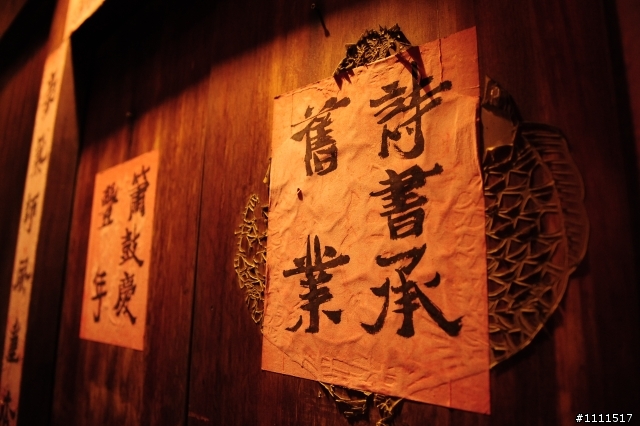 詩書承
舊業
簫鼓慶
豐年
#1111517